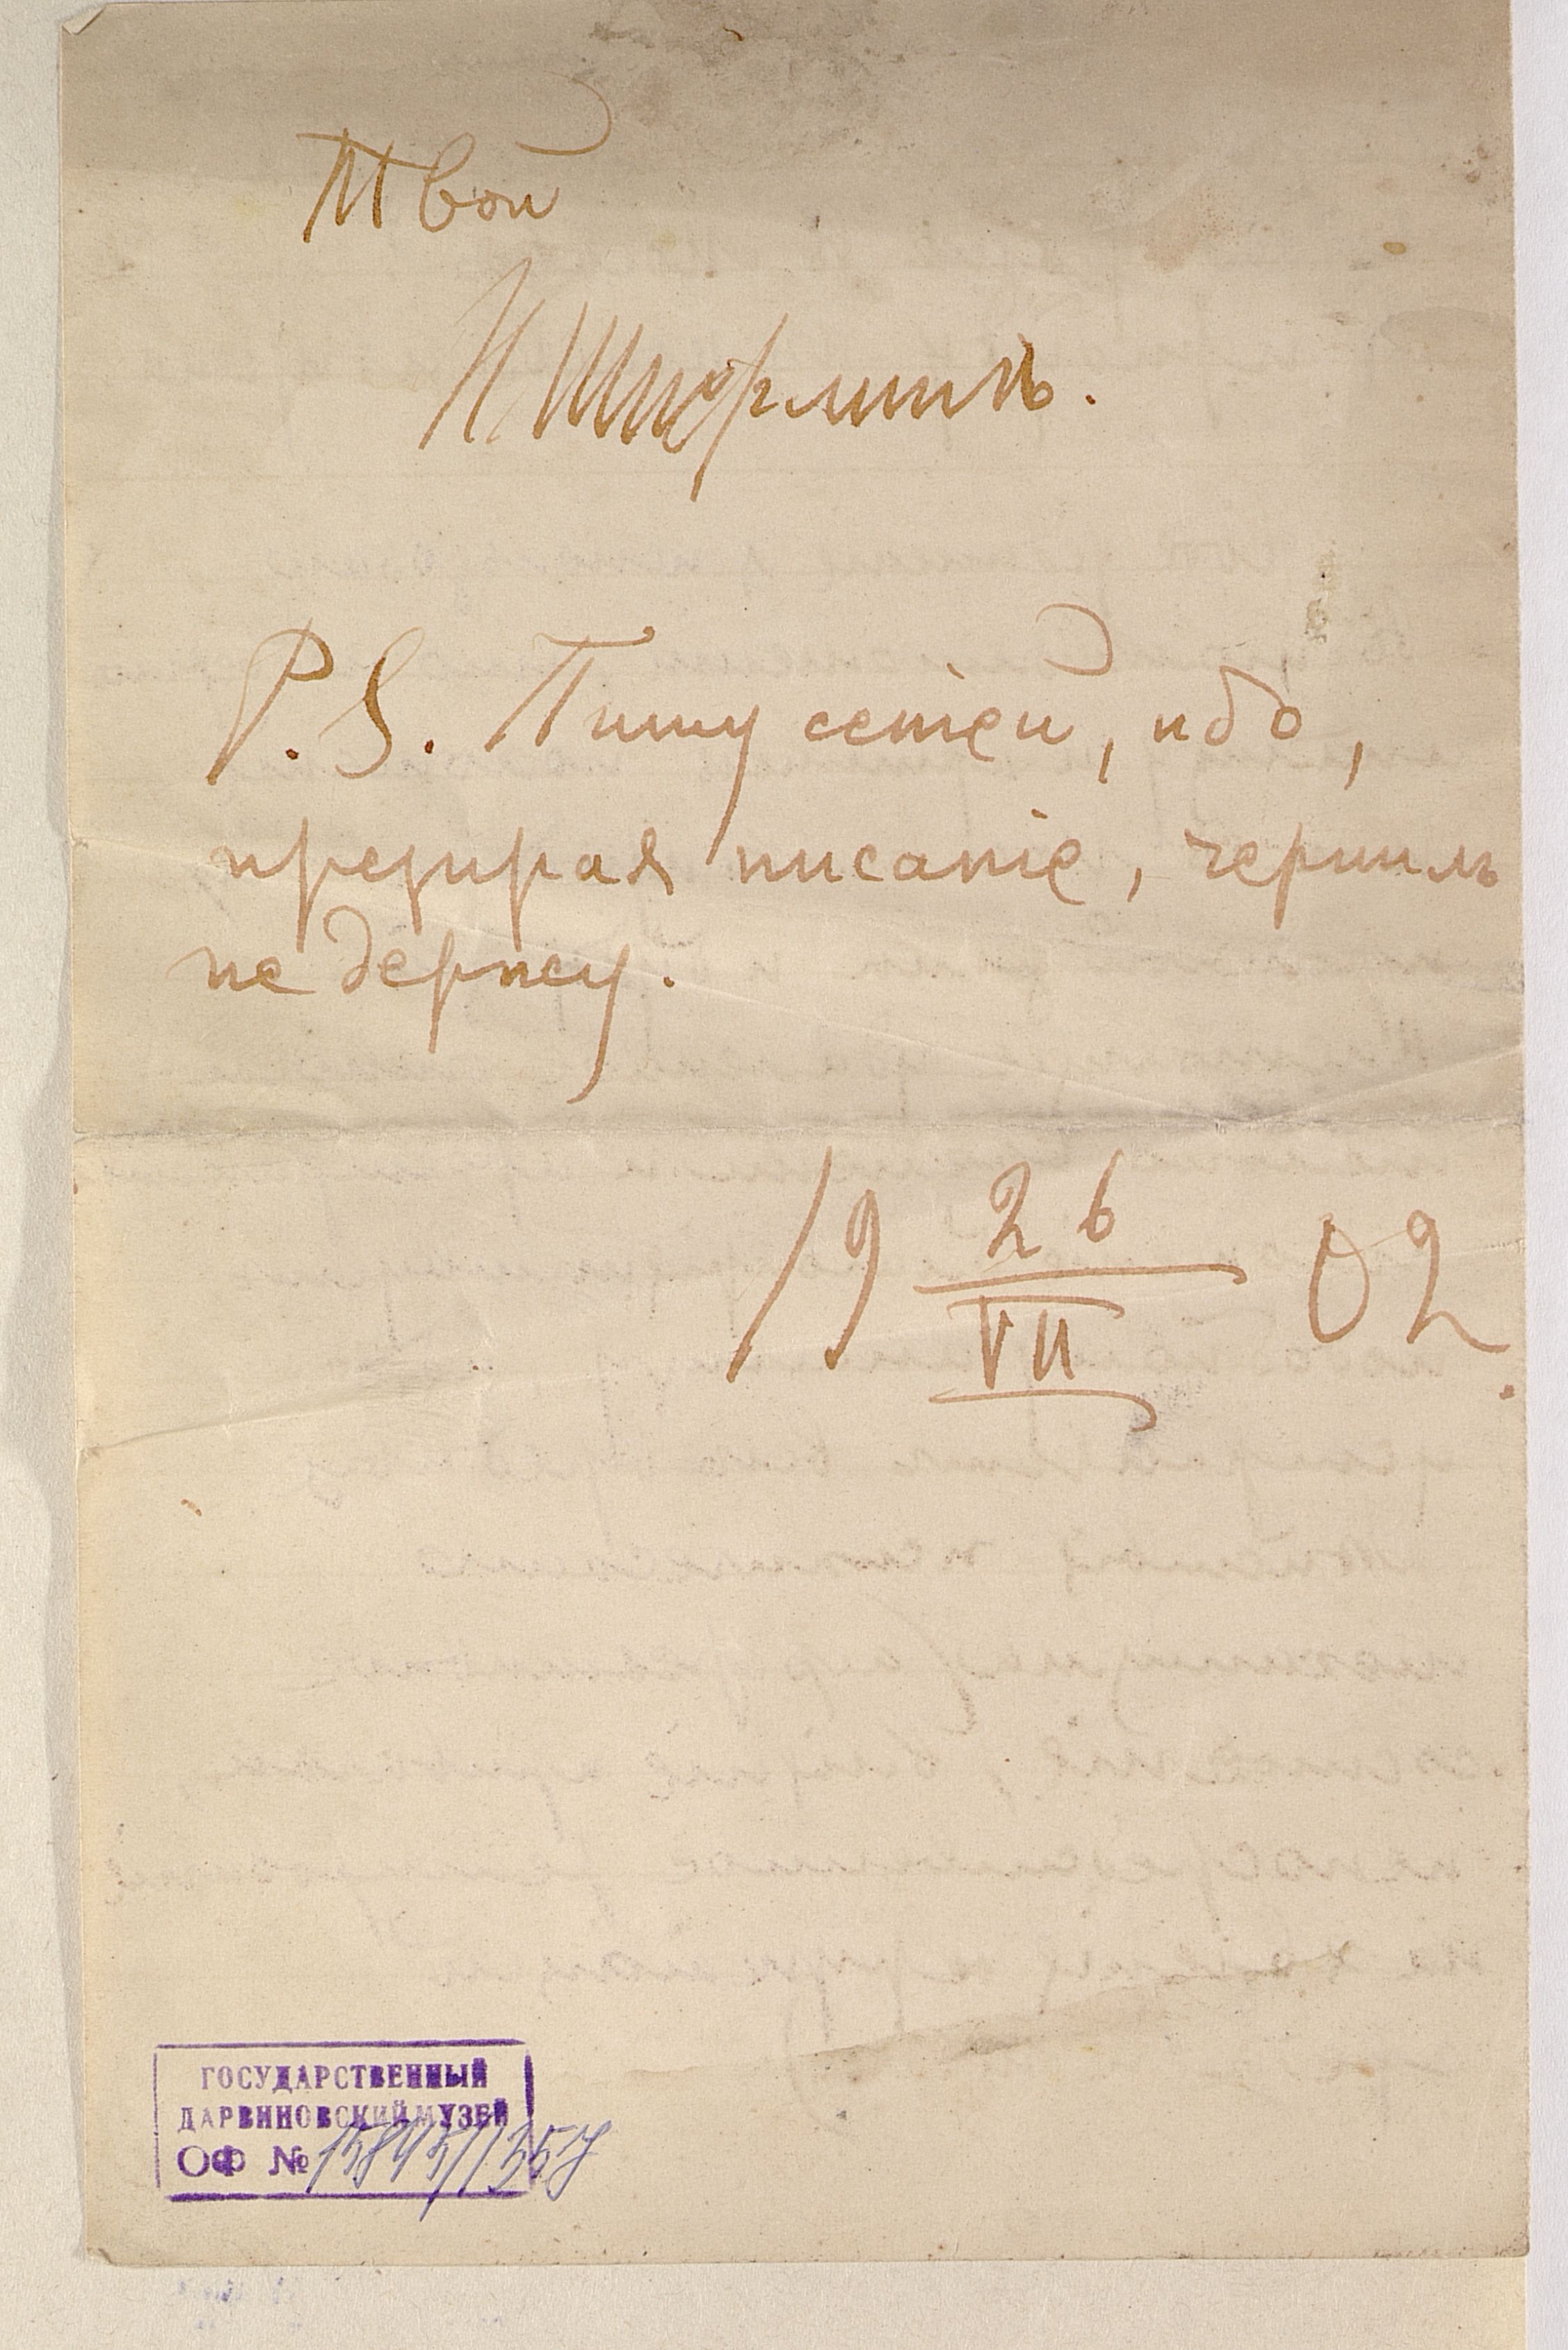 Твой
P. S. Пишу сепіей, ибо,
презирая писаніе, чернилъ
не держу.
19 26/VII 02.
ГОСУДАРСТВЕННЫЙ
ДАРВИНОВСКИЙ МУЗЕЙ
ОФ №